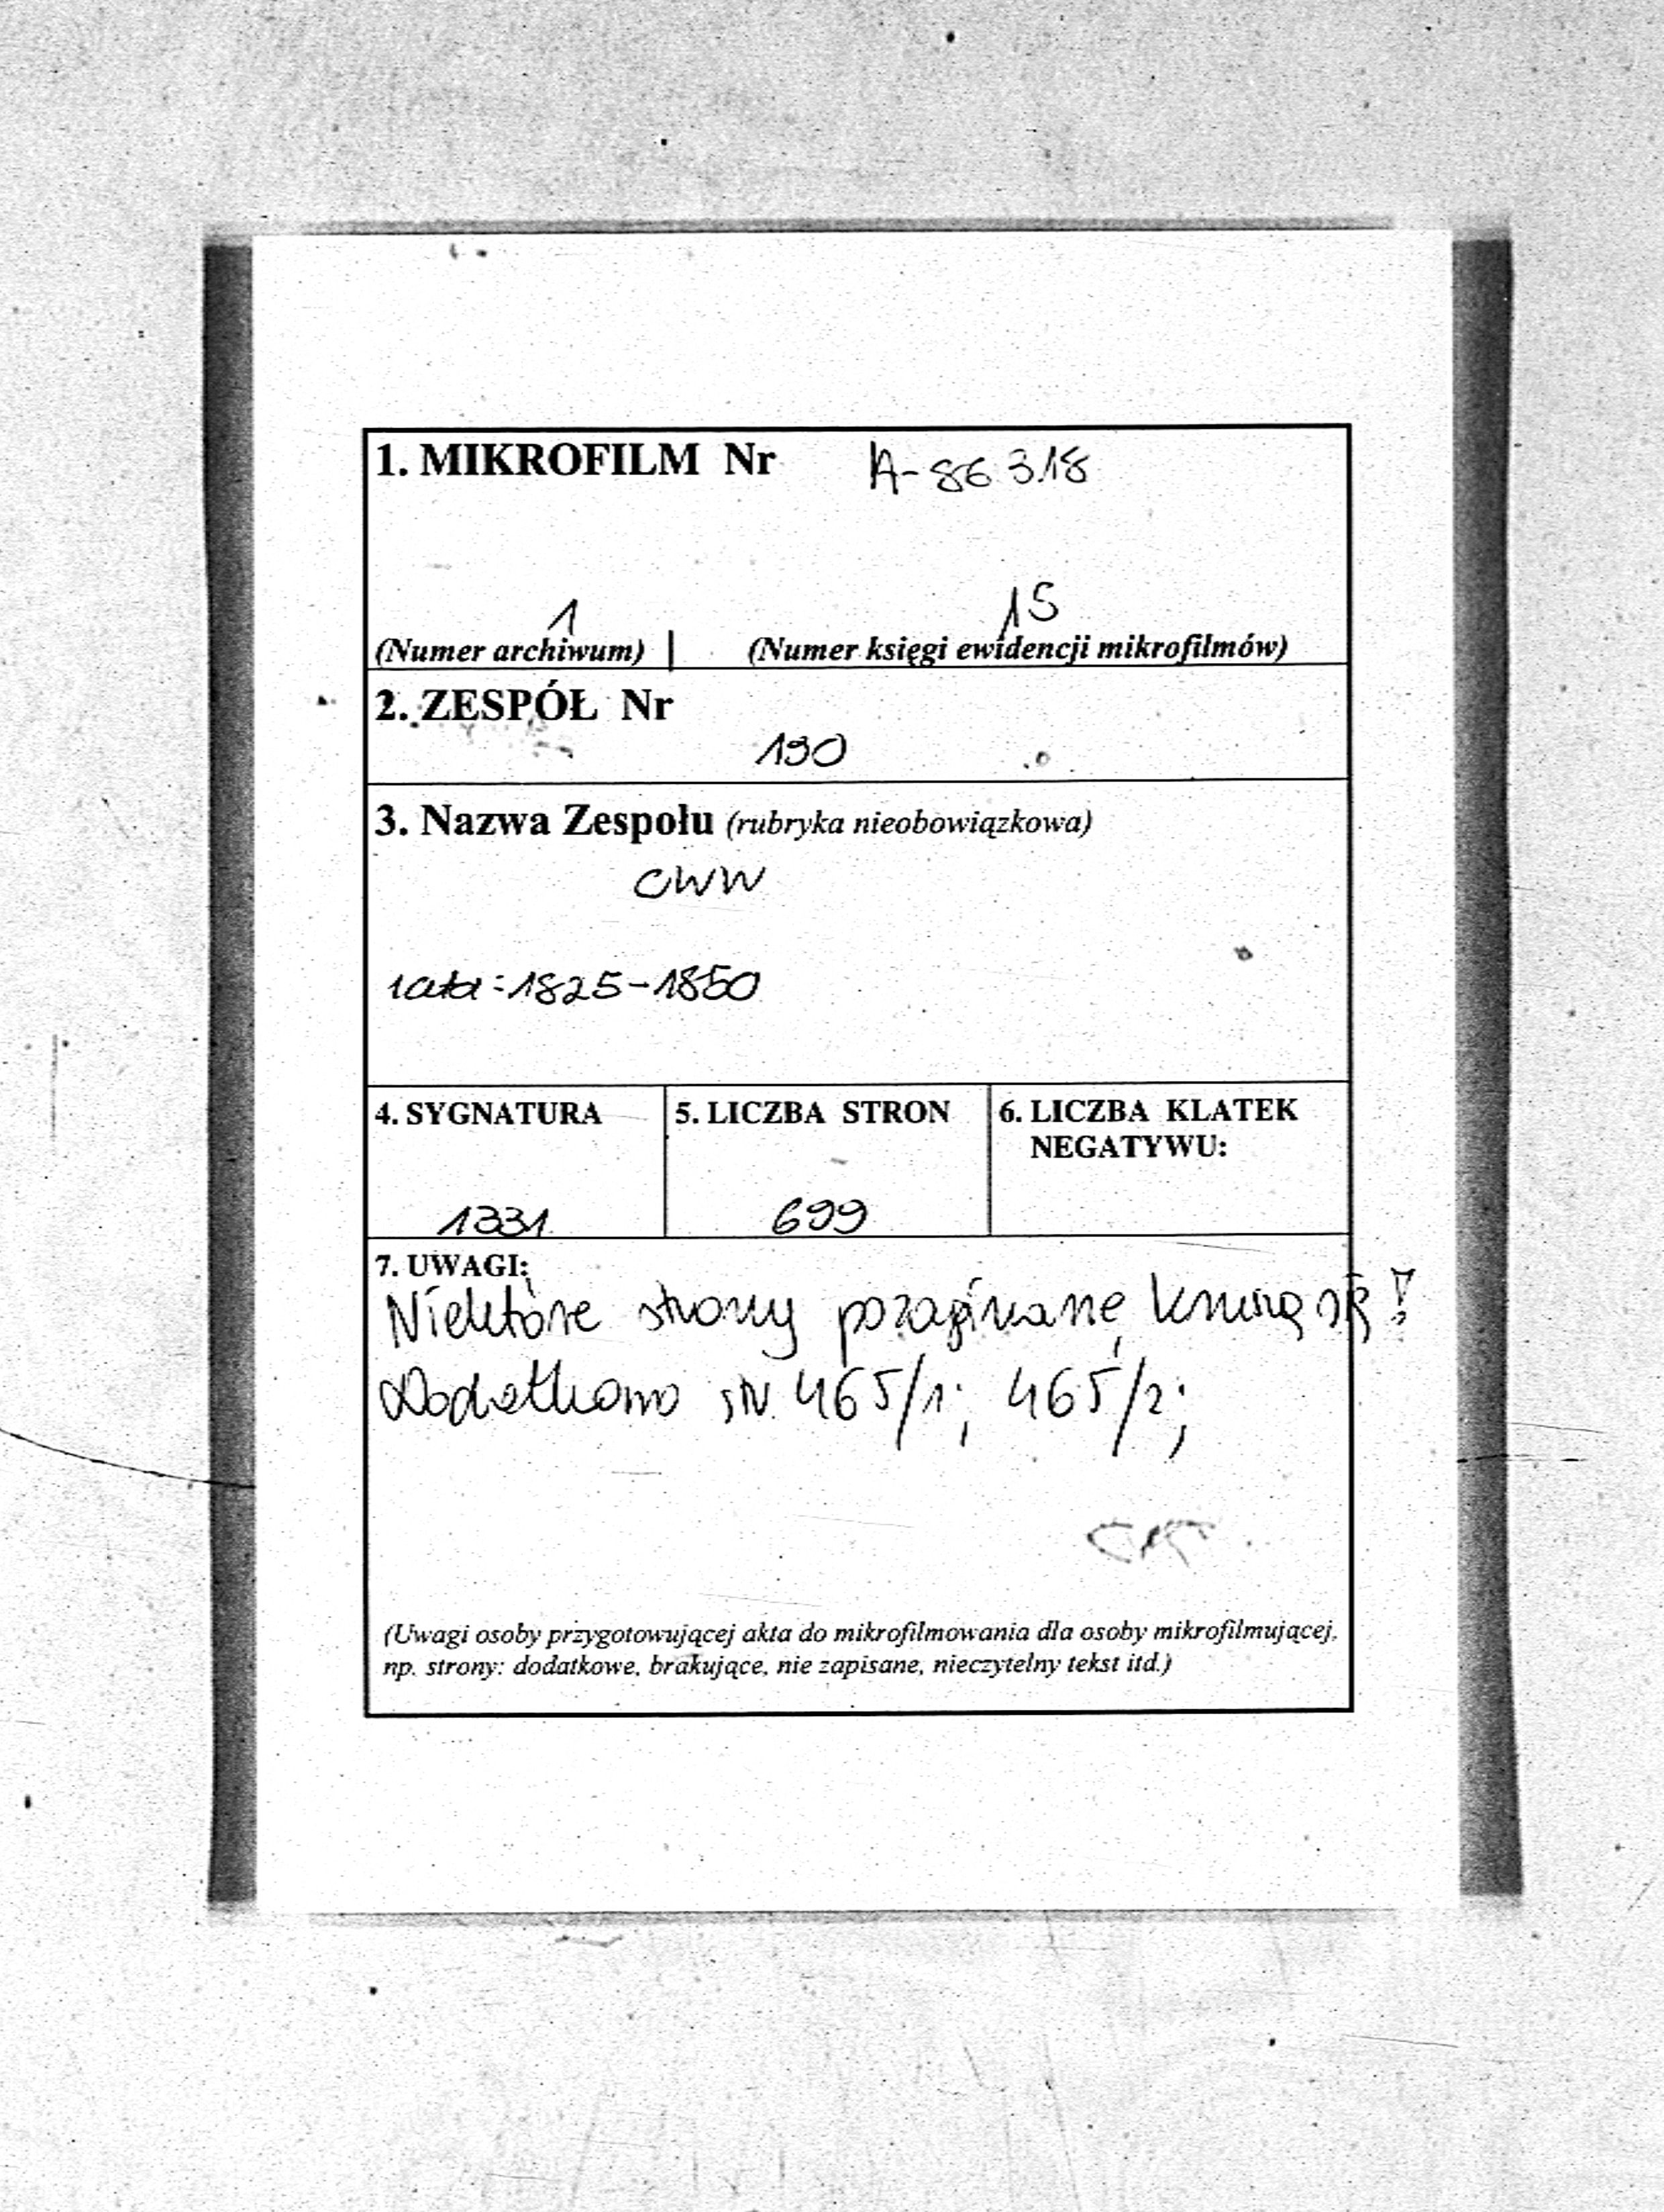 1. MIKROFILM Nr A-86318
1 15
(Numer archiwum) | (Numer księgi ewidencji mikrofilmów)
2. ZESPÓŁ Nr
190
3. Nazwa Zespołu (rubryka nieobowiązkowa)
CWW
lata: 1825-1850
4. SYGNATURA 5. LICZBA STRON 6. LICZBA KLATEK
NEGATYWU:
1331 699
7. UWAGI:
Niektóre strony pozaginane, kruszą się!
Dodatkowo str. 465/1; 465/2;
(Uwagi osoby przygotowującej akta do mikrofilmowania dla osoby mikrofilmującej,
np. strony: dodatkowe, brakujące, nie zapisane, nieczytelny tekst itd.)